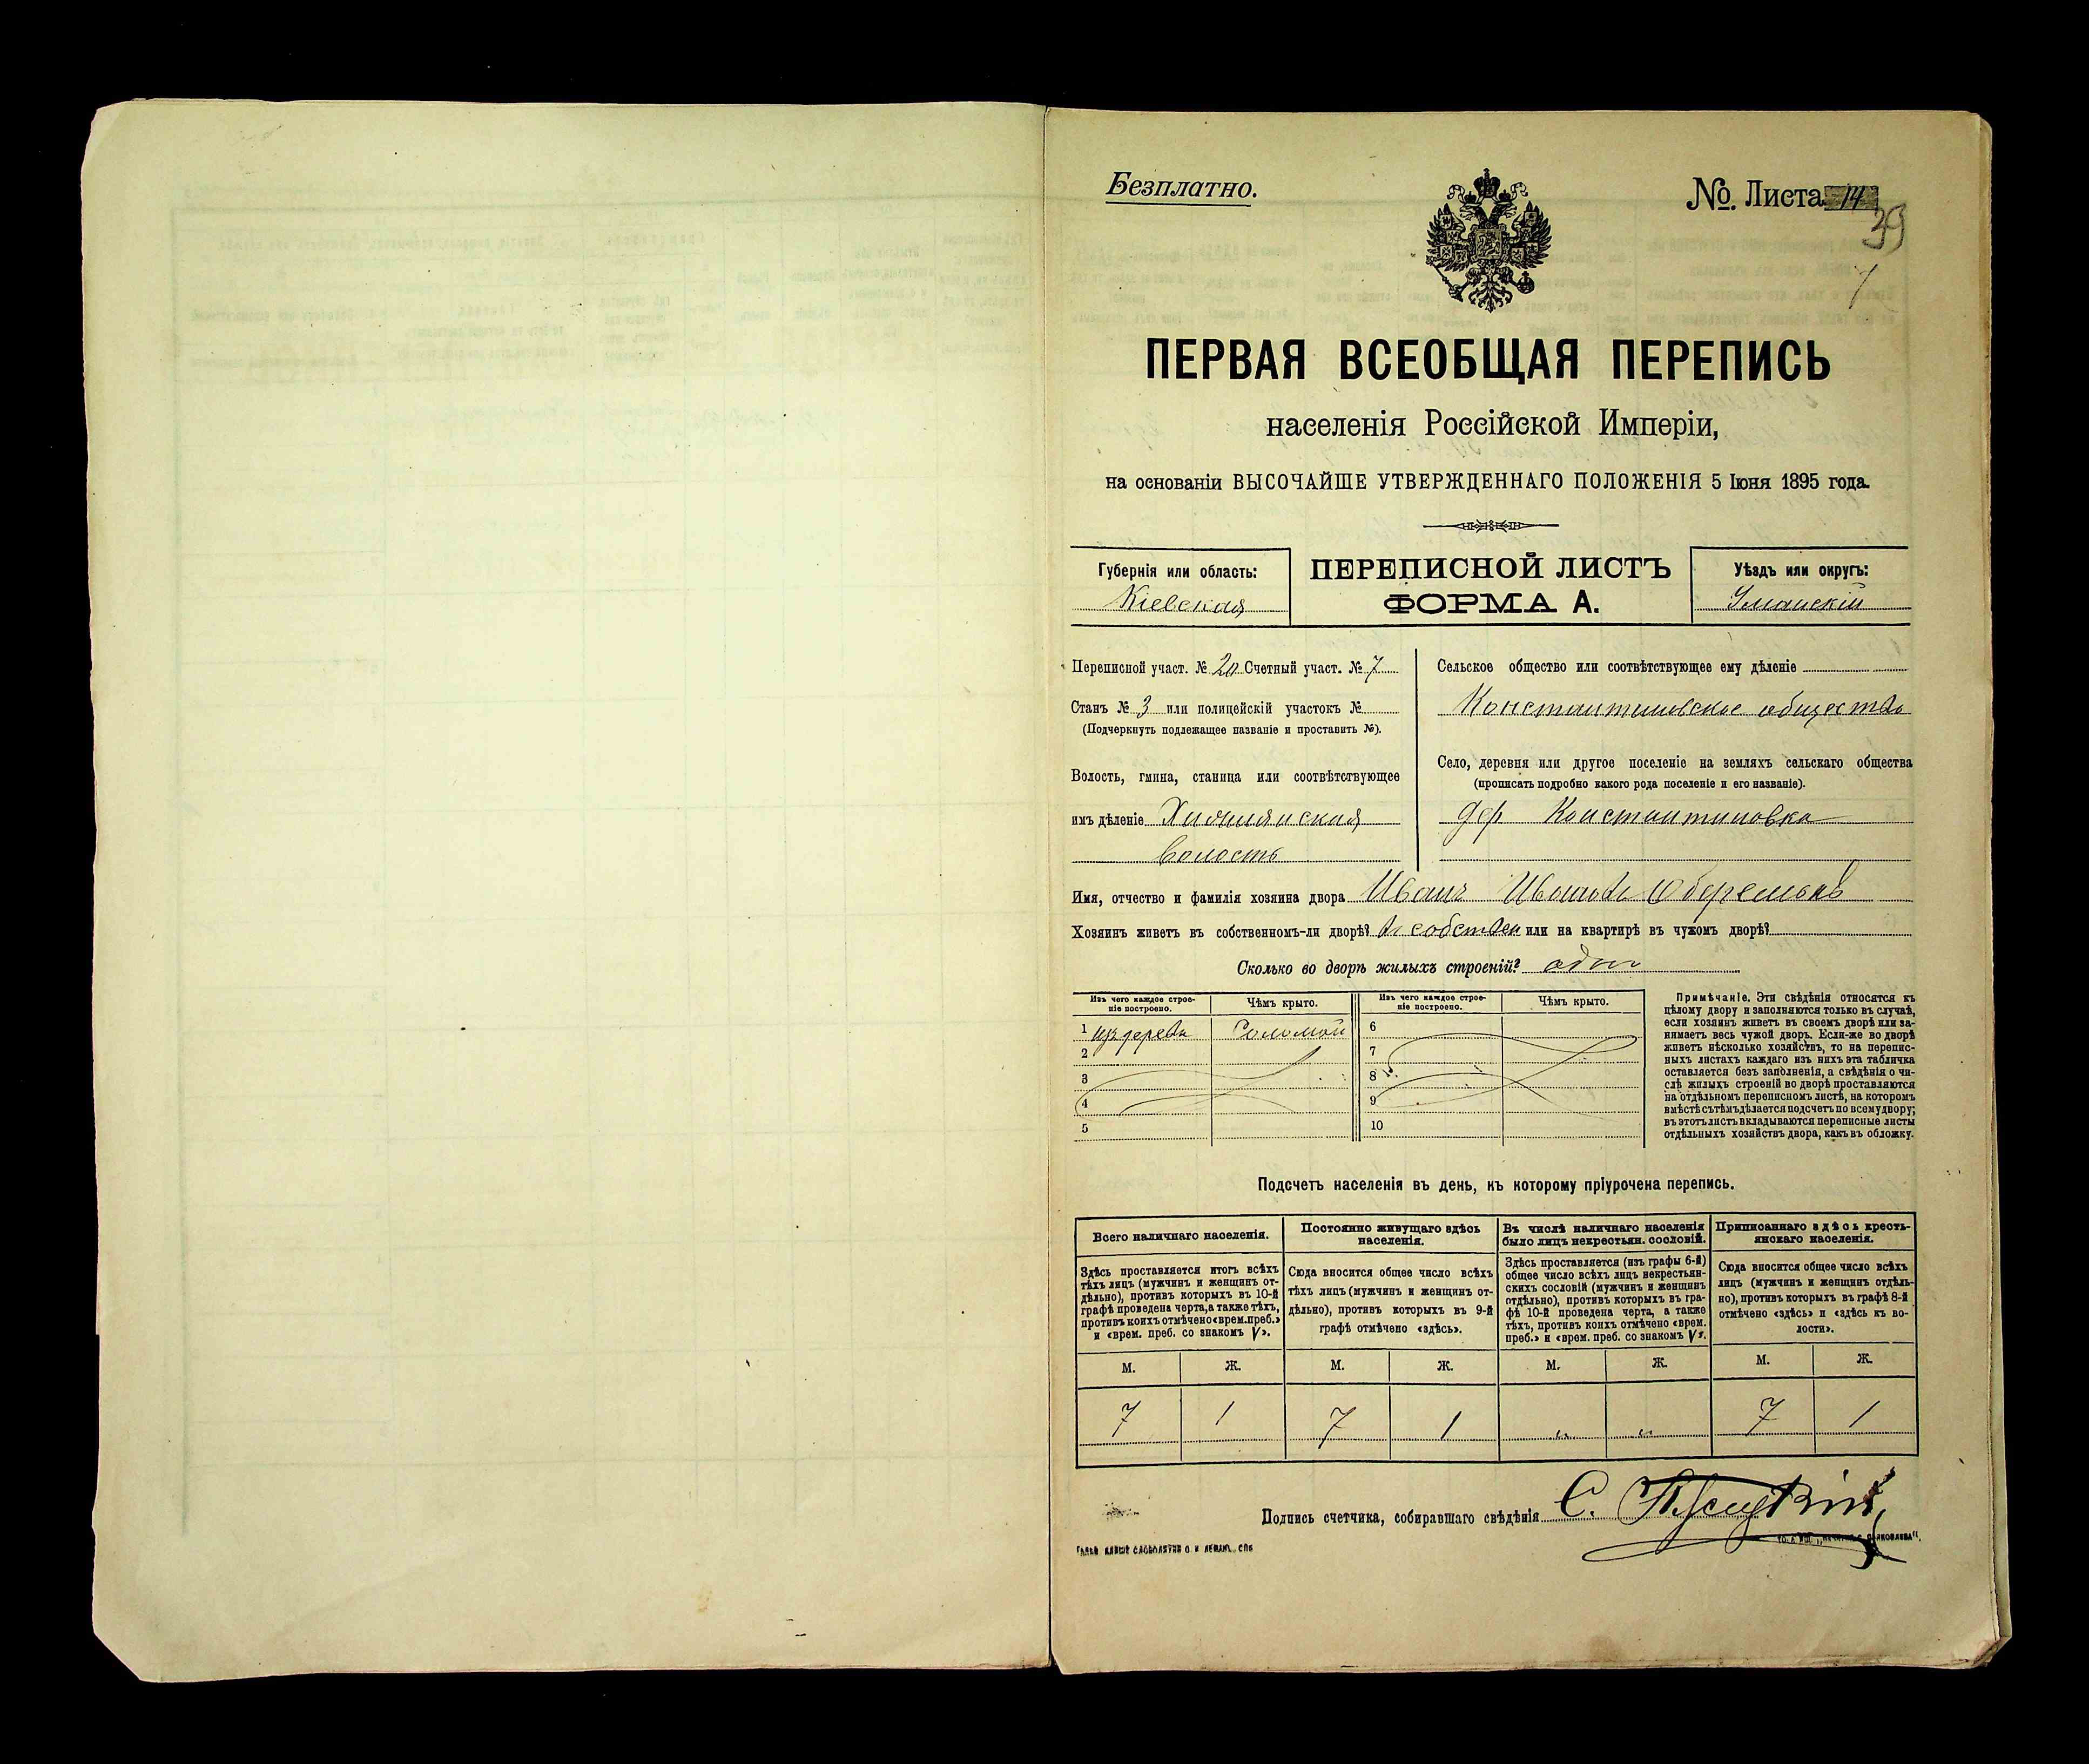 Безплатно.
№. Листа 14
39
ПЕРВАЯ ВСЕОБЩАЯ ПЕРЕПИСЬ
населенія Россійской Имперіи,
на основаніи ВЫСОЧАЙШЕ УТВЕРЖДЕННАГО ПОЛОЖЕНІЯ 5 Іюня 1895 года.
Губернія или область:
Кіевская
ПЕРЕПИСНОЙ ЛИСТЪ
ФОРМА А.
Уѣздъ или округъ:
Уманскій
Переписной участ. № 20 Счетный участ. № 7
Станъ № 3 или полицейскій участокъ №
(Подчеркнуть подлежащее названіе и проставить №).
Волость, гмина, станица или соотвѣтствующее
имъ дѣленіе
волость
Сельское общество или соотвѣтствующее ему дѣленіе
Константиновское общество
Село, деревня или другое поселеніе на земляхъ сельскаго общества
(прописать подробно какого рода поселеніе и его названіе).
дер. Константиновка
Имя, отчество и фамилія хозяина двора Иванъ Ивановъ
Хозяинъ живетъ въ собственномъ-ли дворѣ? въ собствен или на квартирѣ въ чужомъ дворѣ?
Сколько во дворѣ жилыхъ строеній? одно
Изъ чего каждое строе-
ніе построено.
Чѣмъ крыто.
1 изъ дерева Соломой
2
3
4
5
Изъ чего каждое строе-
ніе построено.
Чѣмъ крыто.
6
7
8
9
10
Примѣчаніе. Эти свѣдѣнія относятся къ
цѣлому двору и заполняются только въ случаѣ,
если хозяинъ живетъ въ своемъ дворѣ или за-
нимаетъ весь чужой дворъ. Если-же во дворѣ
живетъ нѣсколько хозяйствъ, то на перепис-
ныхъ листахъ каждаго изъ нихъ эта табличка
оставляется безъ заполненія, а свѣдѣнія о чи-
слѣ жилыхъ строеній во дворѣ проставляются
на отдѣльномъ переписномъ листѣ, на которомъ
вмѣстѣ съ тѣмъ дѣлается подсчетъ по всему двору;
въ этотъ листъ вкладываются переписные листы
отдѣльныхъ хозяйствъ двора, какъ въ обложку.
Подсчетъ населенія въ день, къ которому пріурочена перепись.
Всего наличнаго населенія.
Здѣсь проставляется итогъ всѣхъ
тѣхъ лицъ (мужчинъ и женщинъ от-
дѣльно), противъ которыхъ въ 10-й
графѣ проведена черта, а также тѣхъ,
противъ коихъ отмѣчено «врем. преб.»
и «врем. преб. со знакомъ V».
М. Ж.
7 1
Постоянно живущаго здѣсь
населенія.
Сюда вносится общее число всѣхъ
тѣхъ лицъ (мужчинъ и женщинъ от-
дѣльно), противъ которыхъ въ 9-й
графѣ отмѣчено «здѣсь».
М. Ж.
7 1
Въ числѣ наличнаго населенія
было лицъ некрестьян. сословій.
Здѣсь проставляется (изъ графы 6-й)
общее число всѣхъ лицъ некрестьян-
скихъ сословій (мужчинъ и женщинъ
отдѣльно), противъ которыхъ въ гра-
фѣ 10-й проведена черта, а также
тѣхъ, противъ коихъ отмѣчено «врем.
преб.» и «врем. преб. со знакомъ V».
М. Ж.
" "
Приписаннаго здѣсь кресть-
янскаго населенія.
Сюда вносится общее число всѣхъ
лицъ (мужчинъ и женщинъ отдѣль-
но), противъ которыхъ въ графѣ 8-й
отмѣчено «здѣсь» и «здѣсь въ во-
лости».
М. Ж.
7 1
Подпись счетчика, собиравшаго свѣдѣнія С.